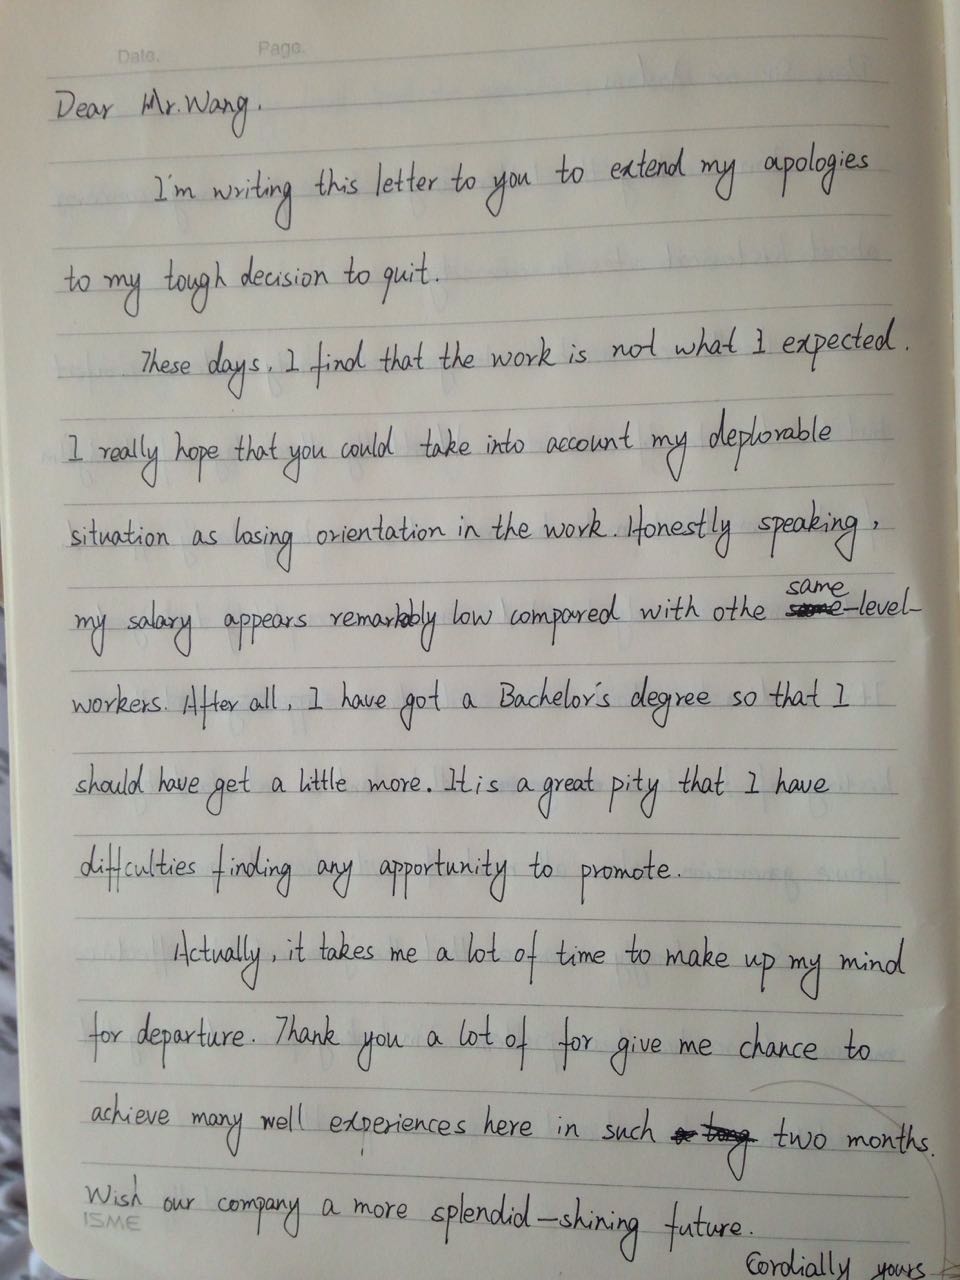 Date. Page.
Dear Mr. Wang.
I'm writing this letter to you to extend my apologies
to my tough decision to quit.
These days, I find that the work is not what I expected.
I really hope that you could take into account my deplorable
situation as losing orientation in the work. Honestly speaking,
same
my salary appears remarkably low compared with othe same-level-
workers. After all, I have got a Bachelor's degree so that I
should have get a little more. It is a great pity that I have
diffculties finding any apportunity to promote.
Actually, it takes me a lot of time to make up my mind
for departure. Thank you a lot of for give me chance to
achieve many well experiences here in such two months.
Wish our company a more splendid-shining future.
ISME
Cordially yours